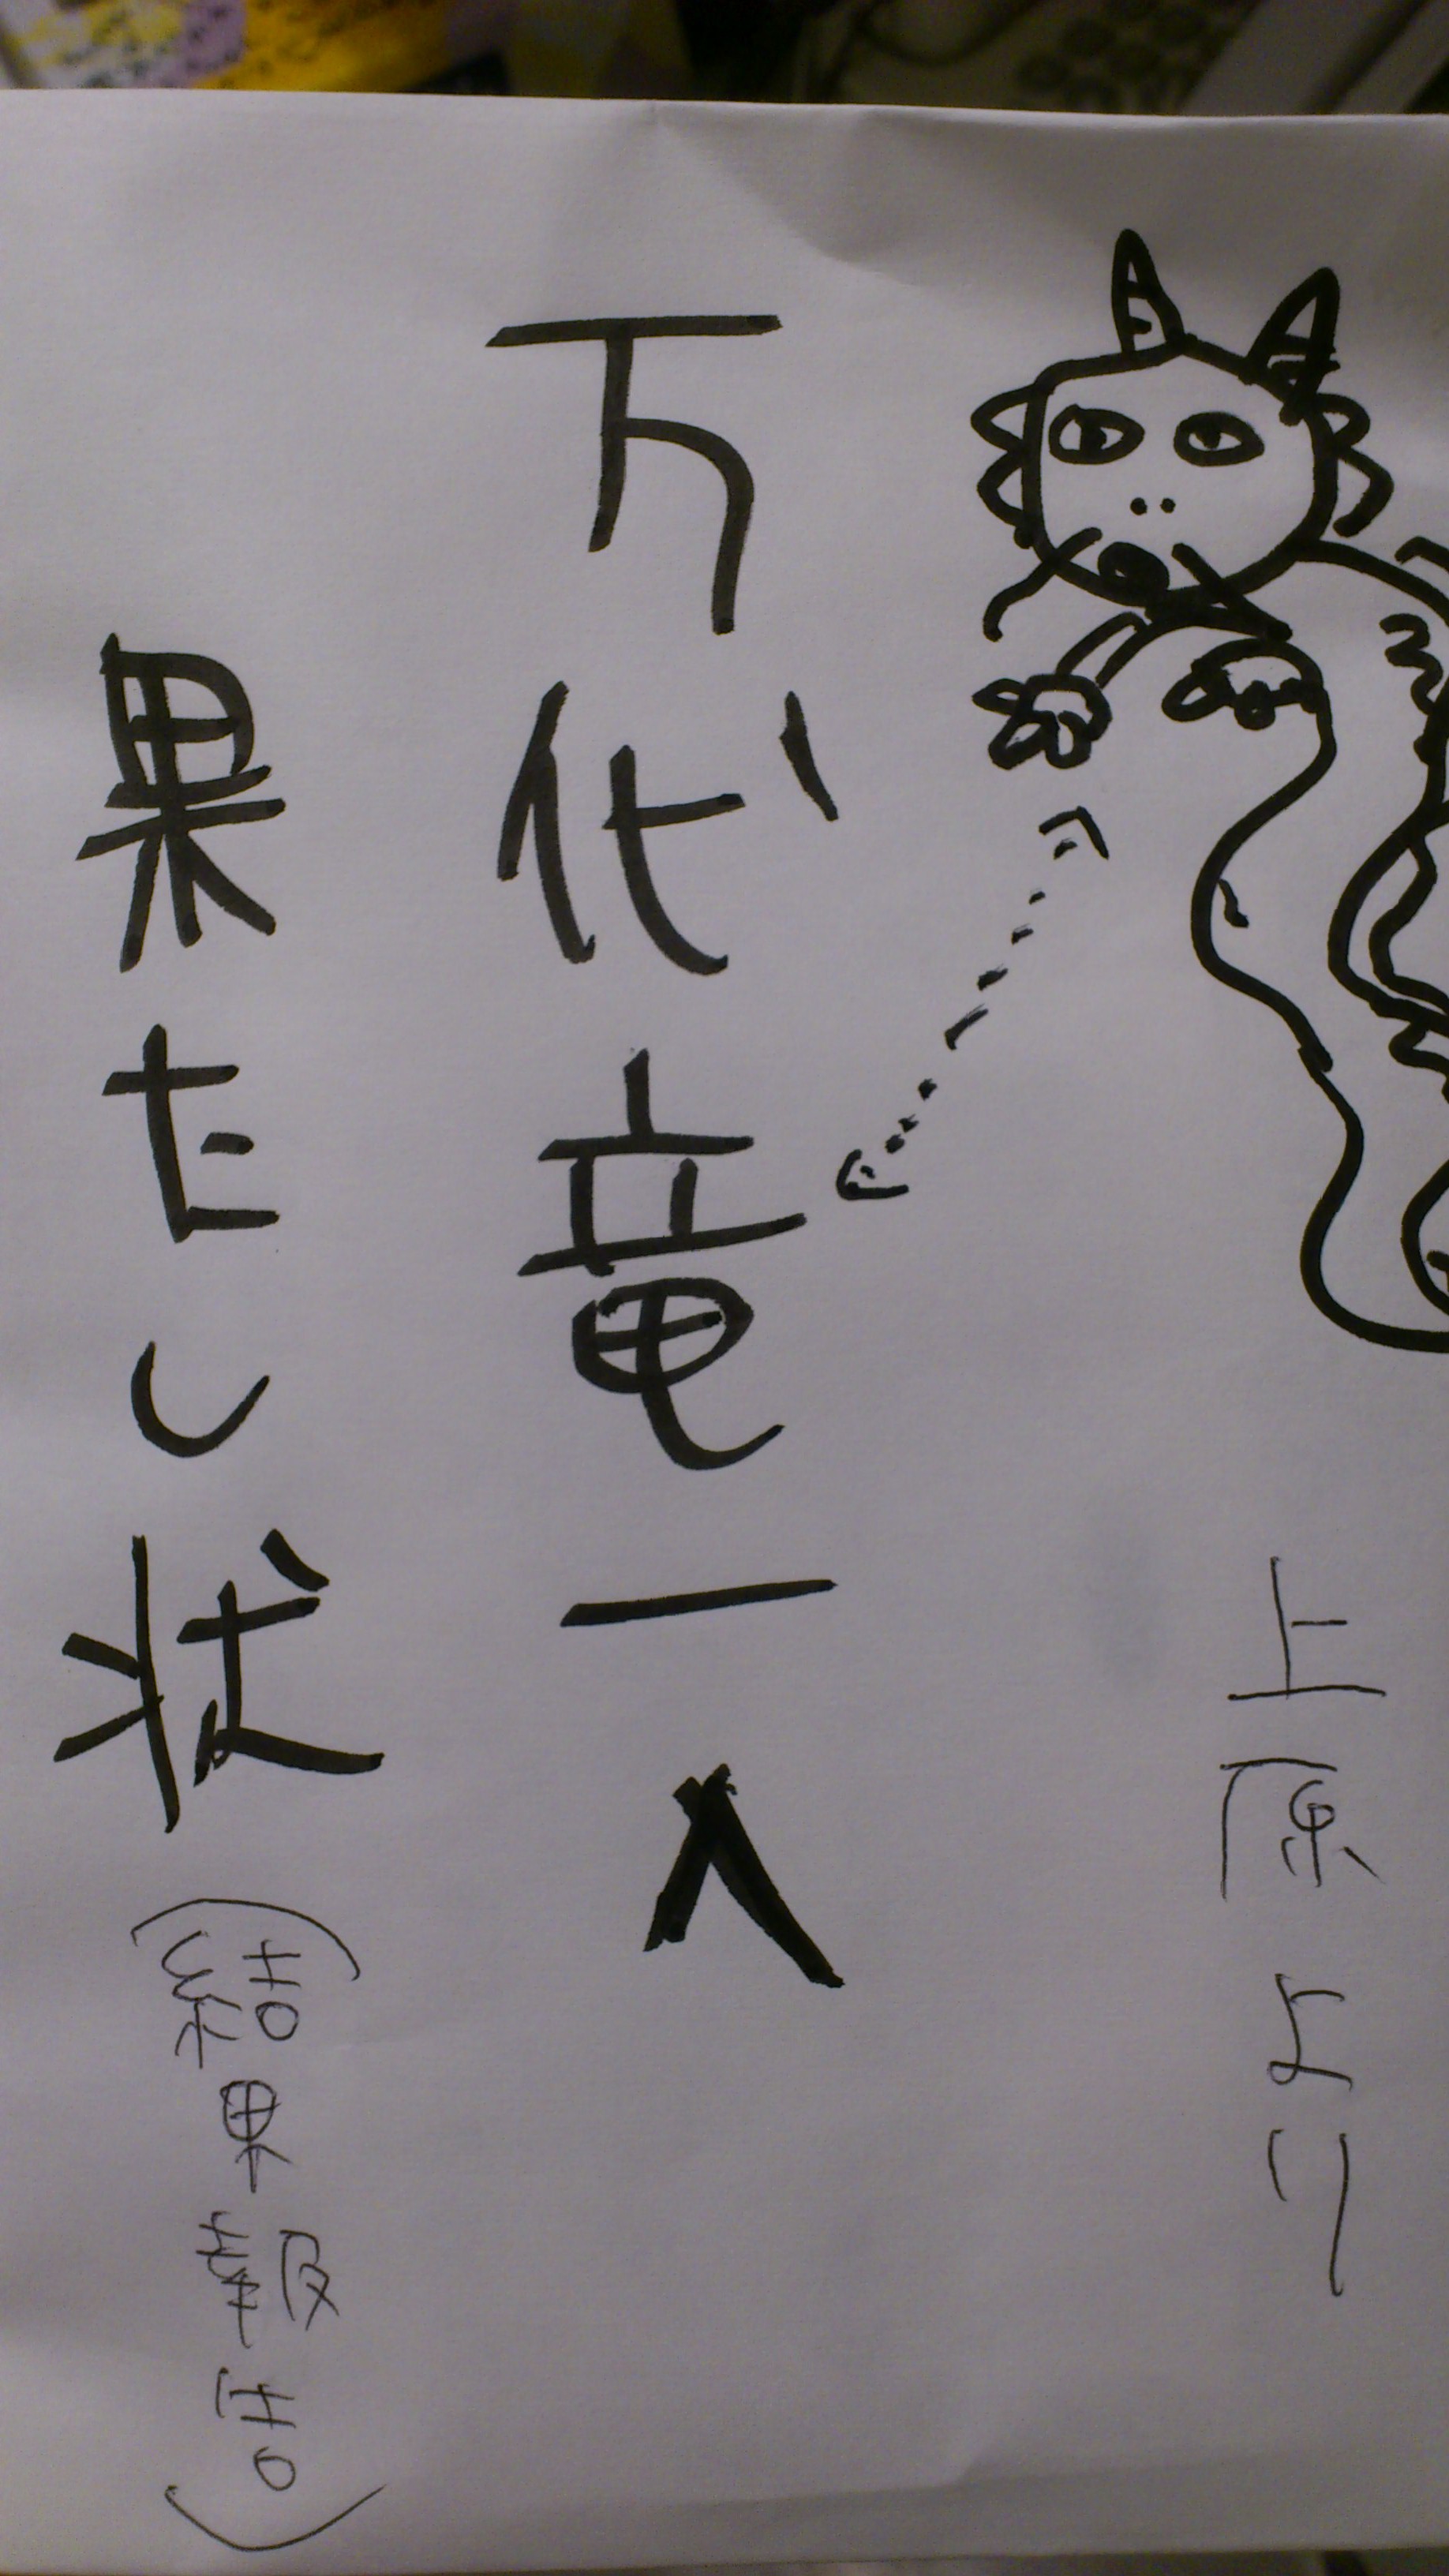 上原より
万代竜一へ
果たし状(結果報告)